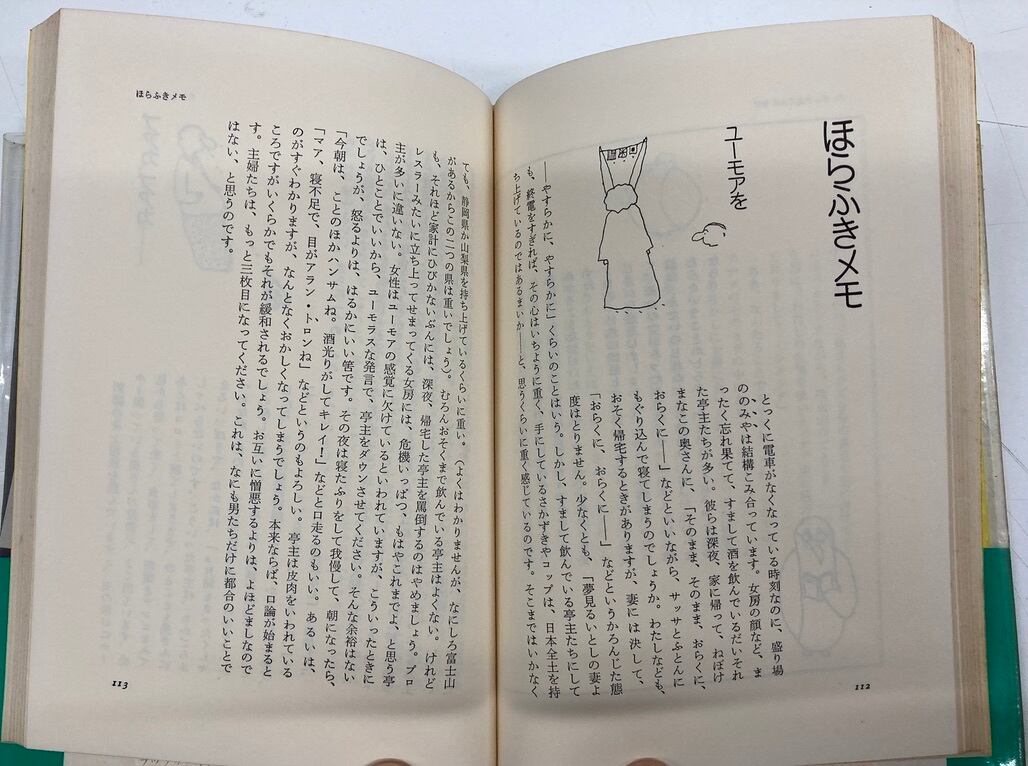 ほらふきメモ
ユーモアを
とっくに電車がなくなっている時刻なのに、盛り場
ののみやは結構こみ合っています。女房の顔など、ま
ったく忘れ果てて、すまして酒を飲んでいるだいそれ
た亭主たちが多い。彼らは深夜、家に帰って、ねぼけ
まなこの奥さんに、「そのまま、そのまま、おらくに、
おらくに――」などといいながら、サッサとふとんに
もぐり込んで寝てしまうのでしょうか。わたしなども、
おそく帰宅するときがありますが、妻には決して、
「おらくに、おらくに――」などというかろんじた態
度はとりません。少なくとも、「夢見るいとしの妻よ
――やすらかに、やすらかに」くらいのことはいう。しかし、すまして飲んでいる亭主たちにして
も、終電をすぎれば、その心はいちように重く、手にしているさかずきやコップは、日本全土を持
ち上げているのではあるまいか――と、思うくらいに重く感じているのです。そこまではいかなく
112
ほらふきメモ
ても、静岡県か山梨県を持ち上げているくらいに重い。（よくはわかりませんが、なにしろ富士山
があるからこの二つの県は重いでしょう）。むろんおそくまで飲んでいる亭主はよくない。けれど
も、それほど家計にひびかないぶんには、深夜、帰宅した亭主を罵倒するのはやめましょう。プロ
レスラーみたいに立ち上ってせまってくる女房には、危機いっぱつ、もはやこれまでよ、と思う亭
主が多いに違いない。女性はユーモアの感覚に欠けているといわれていますが、こういったときに
は、ひとことでいいから、ユーモラスな発言で、亭主をダウンさせてください。そんな余裕はない
でしょうが、怒るよりは、はるかにいい筈です。その夜は寝たふりをして我慢して、朝になったら、
「今朝は、ことのほかハンサムね。酒光りがしてキレイ！」などと口走るのもいい。あるいは、
「マア、寝不足で、目がアラン・トロンね」などというのもよろしい。亭主は皮肉をいわれている
のがすぐわかりますが、なんとなくおかしくなってしまうでしょう。本来ならば、口論が始まると
ころですがいくらかでもそれが緩和されるでしょう。お互いに憎悪するよりは、よほどましなので
す。主婦たちは、もっと三枚目になってください。これは、なにも男たちだけに都合のいいことで
はない、と思うのです。
113